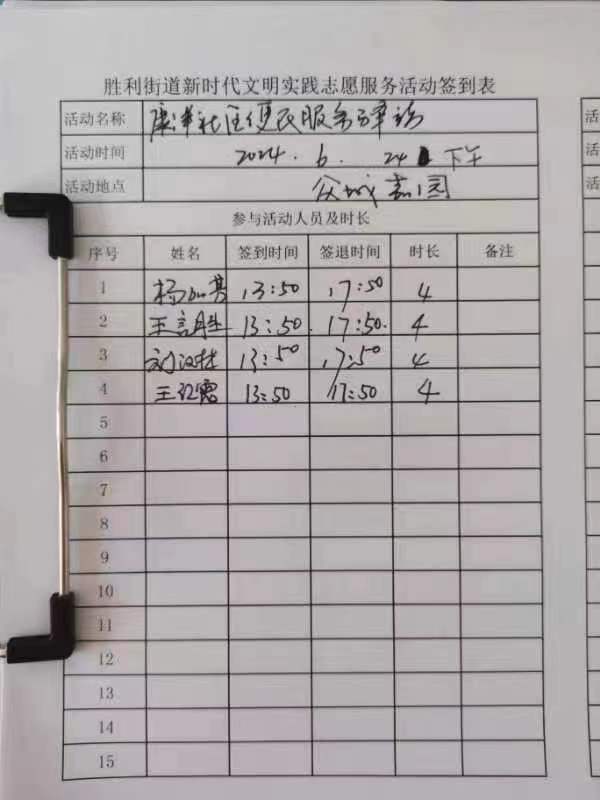 胜利街道新时代文明实践志愿服务活动签到表
活动名称 康华社区便民服务
活动时间 2024.6.24 下午
活动地点 众城嘉园
参与活动人员及时长
序号 姓名 签到时间 签退时间 时长 备注
1 杨 13:50 17:50 4
2 王言胜 13:50. 17:50. 4
3 刘汉林 13:50 17:50 4
4 王红霞 13:50 17:50 4
5
6
7
8
9
10
11
12
13
14
15
活
活
活